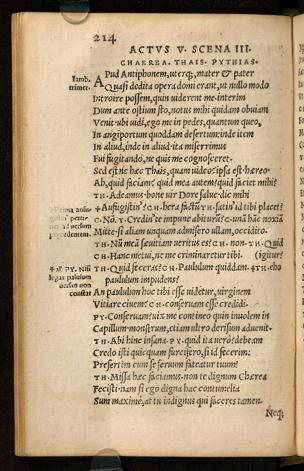 214
ACTVS V. SCENA III.
CHAEREA. THAIS. PYTHIAS.
Iamb.
trimet.
APud Antiphonem, uterq;, mater & pater
Quasi dedita opera domi erant, ut nullo modo
Introire possem, quin uiderent me. interim
Dum ante ostium sto, notus mihi quidam obuiam
Venit. ubi uidi, ego me in pedes, quantum queo,
In angiportum quoddam desertum: inde item
In aliud, inde in aliud. ita miserrimus
Fui fugitando, ne quis me cognosceret.
Sed est ne hæc Thais, quam uideo? ipsa est. hæreo.
Ah, quid faciam? quid mea autem? quid faciet mihi?
TH. Adeamus. bone uir Dore salue. dic mihi
Aufugistin? CH. hera factũ TH. satin' id tibi placet?
C. Nõ. T. Credin' te impune abiturũ? C. unã hãc noxiã
Mitte. si aliam unquam admisero ullam, occidito.
TH. Nũ meã sæuitiam ueritus es? CH. non. TH. Quid
CH. Hanc metui, ne me criminaretur tibi. (igitur?
TH. Quid feceras? CH. Paululum quiddam. PY. Eho
paululum impudens?
An paululum hoc tibi esse uidetur, uirginem
Vitiare ciuem? CH. conseruam esse credidi.
PY. Conseruam? uix me contineo quin inuolem in
Capillum. monstrum, etiam ultro derisum aduenit.
TH. Abi hinc insana. PY. quid ita uero? debeam
Credo isti quicquam furcifero, si id fecerim:
Præsertim cum se seruum fateatur tuum?
TH. Missa hæc faciamus. non te dignum Chærea
Fecisti. nam si ego digna hac contumelia
Sum maxime, at tu indignus qui faceres tamen.
Neq;